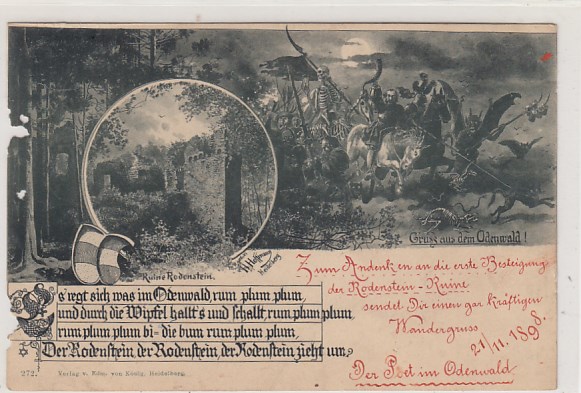 Gruss aus dem Odenwald!
Ruine Rodenstein.
Es regt sich was im Odenwald, rum plum plum,
und durch die Wipfel hallt's und schallt, rum plum plum
rum plum plum bi- die bum rum plum plum,
Der Rodenstein, der Rodenstein, der Rodenstein zieht um.
272. Verlag v. Edm. von König, Heidelberg.
Zum Andenken an die erste Besteigung
der Rodenstein-Ruine
sendet Dir einen gar kräftigen
Wandergruss
21/11. 1898.
Der Poet im Odenwald